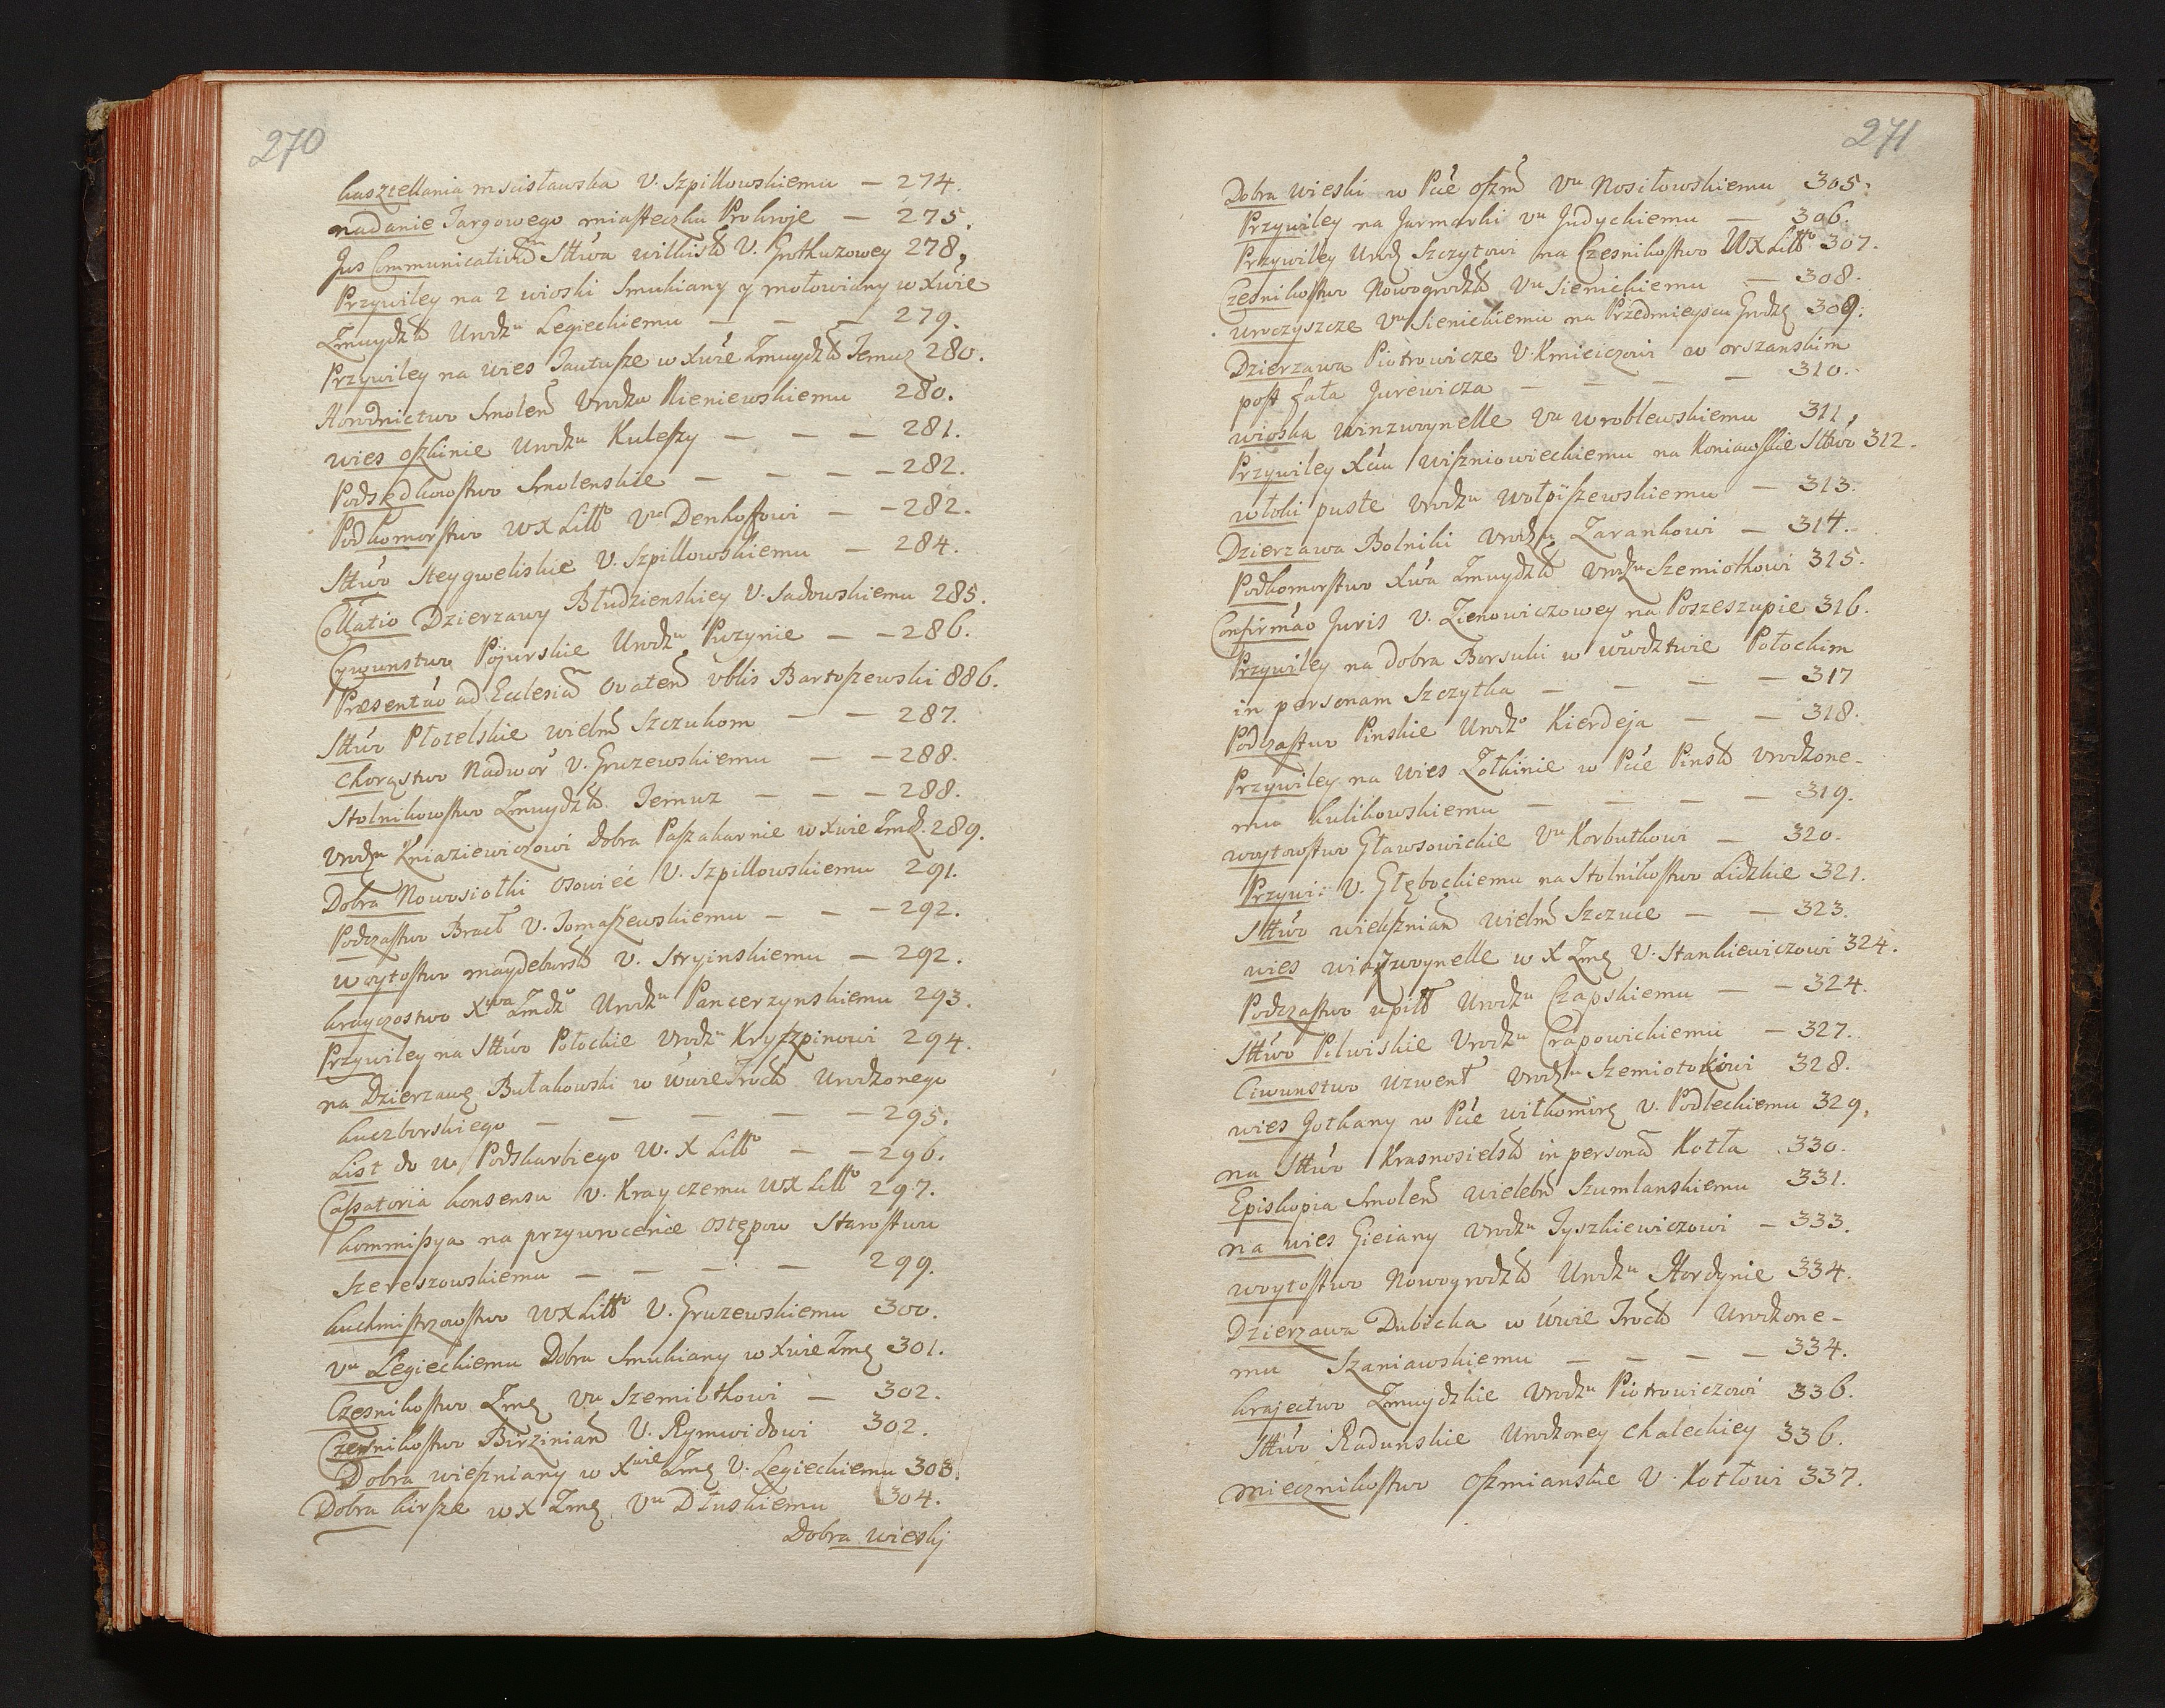 270
kasztellania mscisławska V. Szpillowskiemu — 274.
nadanie Targowego miasteczku Prokroje — 275.
Jus Communicativũ Sttwa wilkisk V. Grothuzowey 278.
Przywiley na 2 wioski Smukiany y mołowiany w Xwie
Zmuydzk Urodzu Legieckiemu — — — 279.
Przywiley na wies Tautusze w Xwie Zmuydzk Temuz 280.
Horodnictwo Smoleń Urodzu Kieniewskiemu 280.
wies oszkinie Urodzu Kuleszy — — — 281.
Podsędkowstwo Smolenskie — — — — 282.
Podkomorstwo WX Litto Vu Denhoffowi — — 282.
Sttwo Steygweliskie V. Szpillowskiemu — 284.
Collatio Dzierzawy Błudzienskiey V. Sadowskiemu 285.
Cywunstwo Pojurskie Urodzu Puzynie — — 286.
Præsentáo ad Ecclesiã Ovateñ vblis Bartoszewski 886.
Sttwo Płotelskie wielm Szczukom — — 287.
Chorąstwo Nadwor V. Gruzewskiemu — — 288.
Stolnikowstwo Zmuydzk Temuz — — — 288.
Urodzu Kniaziewiczowi dobra Paszakarnie w Xwie Zmdz. 289.
Dobra Nowosiołki osowieć V. Szpillowskiemu 291.
Podczastwo Bracł V. Tomaszewskiemu — — — 292.
Woytostwo maydebursk V. Stryinskiemu — 292.
krayczostwo Xwa Zmdzo Urodzu Pancerzynskiemu 293.
Przywiley na Sttwo Połockie Urodzu Kryszpinowi 294.
na Dzierzawę Bułakowski w wwie Trock Urodzonego
kuczborskiego — — — — — 295.
List do w. Podskarbiego W. X Litto — — 296.
Cassatoria konsensu V. Krayczemu WX Litto 297.
kommissya na przywrocenie ostępow Starostwu
Szereszowskiemu — — — — 299.
kuchmistrzostwo WX Litto V. Gruzewskiemu 300.
Vu Legieckiemu Dobra Smukiany w Xwie Zmę 301.
Czesnikostwo Zmę Vu Szemiotkowi — 302.
Czesnikostwo Birziniań V. Rymwidowi 302.
Dobra wieszniany w Xwie Zmę V. Legieckiemu 303.
Dobra kirsze w X Zmę Vu Dłuskiemu 304.
Dobra wieski
271
Dobra wieski w Pcie oszm Vu Nosiłowskiemu 305.
Przywiley na Jarmarki Vu Judyckiemu — 306.
Przywiley Urodz Szczytowi na Czesnikostwo WX Litto 307.
Czesnikostwo Nowogrodzk Vu Sienickiemu — 308.
uroczyszcze Vu Sienickiemu na Przedmiesciu Grodz 309.
Dzierzawa Piotrowicze V. Kmiciczowi w orszanskim
post fata Jurewicza — — — — 310.
wioska winzwoynelle Vu wroblewskiemu 311.
Przywiley Xciu wiszniowieckiemu na Koniawskie Sttwo 312.
włoki puste Urodzu wołpiszewskiemu — 313.
Dzierzawa Bolniki Urodzu Zarankowi — 314.
Podkomorstwo Xwa Zmuydzk Urodzu Szemiotkowi 315.
Confirmáo Juris V. Zienowiczowey na Poszeszupie 316.
Przywiley na dobra Borsuki w wwodztwie Połockim
in personam Szczytka — — — — 317
Podczastwo Pinskie Urodzo Kierdeja — — 318.
Przywiley na wies Zołkinie w Pcie Pinsk Urodzone-
mu kulikowskiemu — — — — 319.
woytostwo Gławsowickie Vu Korbutkowi — 320.
Przywi: V. Głębockiemu na Stolnikostwo Lidzkie 321.
Sttwo wiekszniań wielm Szczuce — — 323.
wies winzwoynelle w X Zmę V. Stankiewiczowi 324.
Podczastwo upitt Urodzu Czapskiemu — — 324.
Sttwo Pilwiskie Urodzu Crapowickiemu — 327.
Ciwunstwo Uzwent Urodzu Szemiotokiowi 328.
wies Jotkany w Pcie wiłkomirę V. Podleckiemu 329.
na Sttwo Krasnosielsk in personã Kotła 330.
Episkopia Smoleń wielebn Szumlanskiemu 331.
na wies Gieiany Urodzu Tyszkiewiczowi — 333.
woytostwo Nowogrodzk Urodzu Hordynie 334.
Dzierzawa Dubicka w wwie Trock Urodzone-
mu Szaniawskiemu — — — — 334.
krajectwo Zmuydzkie Urodzu Piotrowiczowi 336.
Sttwo Radunskie Urodzoney Chaleckiey 336.
miecznikostwo oszmianskie V. Kotłowi 337.